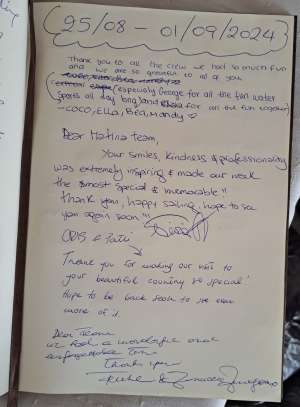 (25/08 - 01/09/2024)
Thank you to all the crew we had so much fun
and we are so grateful to all of you
(especially George for all the fun water
Sports all day long and for all the fun together)
- COCO, Ella, Bea, Mandy ♡
Dear Matina Team,
Your smiles, kindness & professionality
was extremely inspiring & made our week
the most special & memorable!!
Thank you, happy sailing, hope to see
you again soon!!!
& Pati
Thank you for making our visit to
your beautiful country so special!
Hope to be back soon to see even
more of it
Dear Team
we had a wonderful and
unforgettable time
Thank you